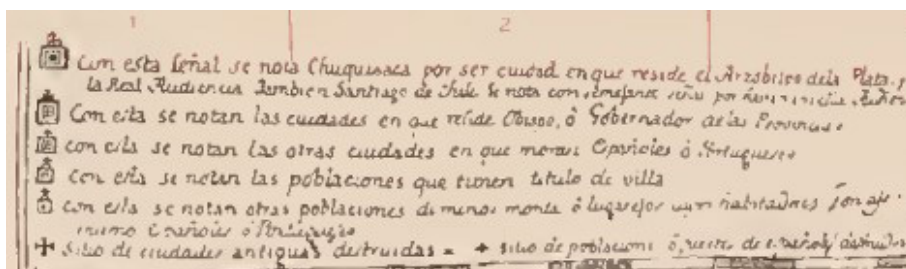 1 2
Con esta señal se nota Chuquisaca por ser ciudad en que reside el Arzobispo dela Plata, y
la Real Audiencia tambien Santiago de Chile se nota con semejante señal por
Con esta se notan las ciudades en que reside Obispo, ò Gobernador de las Provincias.
con esta se notan las otras ciudades en que moran Españoles ò Portugueses
con esta se notan las poblaciones que tienen titulo de villa
con esta se notan otras poblaciones de menos monta ò lugarejos cuyos habitadores son asi-
mismo Españoles ò Portugueses
Sitio de ciudades antiguas destruidas = sitio de poblaciones de españoles destruidas